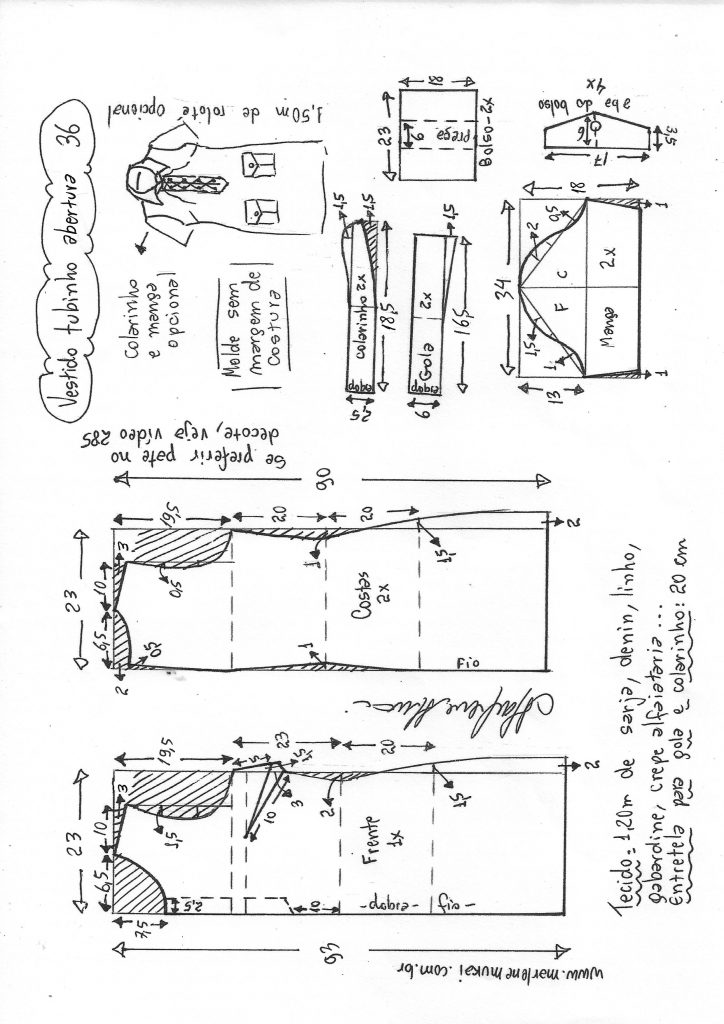 Vestido tubinho abertura 36
1,50m de rolote opcional
Colarinho
e manga
opcional
Molde sem
margem de
costura
Se preferir pate no
decote, veja vídeo 285
23
18
6
Prega
Bolso-2x
aba do bolso
4x
6
3,5
17
1,5
1,5
Colarinho 2x
dobra
2,5
18,5
1,5
Gola
2x
dobra
6
16,5
34
18
2
0,5
F
C
1,5
1
Manga
2x
13
1
1
90
19,5
20
20
23
10
3
6,5
2
0,5
0,5
1
1
1,5
Costas
2x
Fio
2
93
19,5
23
20
23
10
3
6,5
7,5
1,5
1,5
1,5
10
3
2
1,5
2,5
10
Frente
1x
-dobra-
-fio-
2
www.marlenemukai.com.br
Tecido = 1,20m de sarja, denin, linho,
gabardine, crepe alfaiataria ...
Entretela para gola e colarinho: 20 cm